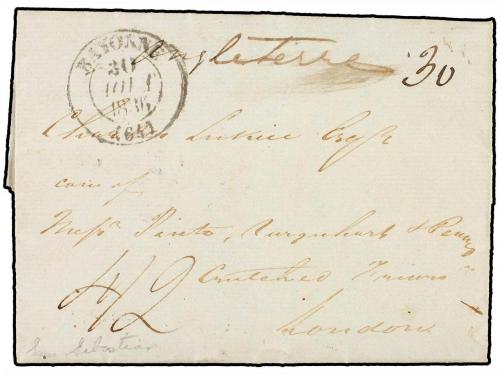 BAYONNE
30
1836
(64)
Angleterre 30
Charles Lukice Esqr
care of
Messrs Pinto, Urquhart & Penny
Crutched Friars
London
4/2
San Sebastián